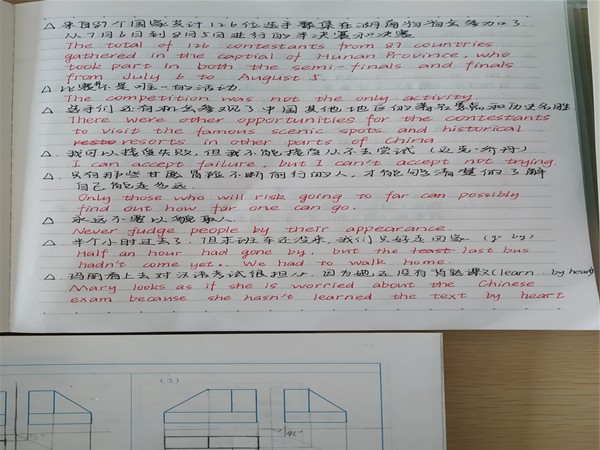 △ 来自87个国家共计126位选手聚集在湖南
从7月6日到8月5日进行的半决赛和决赛
The total of 126 contestants from 87 countries
gathered in the captial of Hunan Province, who
took part in both the semi-finals and finals
from July 6 to August 5.
△ 比赛不是唯一的活动.
The competition was not the only activity.
△ 选手们还有机会参观了中国其他地区的著名景点和历史名胜
There were other opportunities for the contestants
to visit the famous scenic spots and historical
resorts in other parts of China.
△ 我可以接受失败, 但我不能接受从不去尝试 (迈克·乔丹)
I can accept failure, but I can't accept not trying.
△ 只有那些甘愿冒险不断前行的人, 才能了解
自己能走多远.
Only those who will risk going to far can possibly
find out how far one can go.
△ 永远不要以貌取人
Never judge people by their appearance.
△ 半个小时过去了, 但末班车还没来, 我们只好走回家 (go by)
Half an hour had gone by, but the last bus
hadn't come yet.. We had to walk home.
△ 玛丽看上去对汉语考试很担心, 因为她还没有背熟课文(learn by heart)
Mary looks as if she is worried about the Chinese
exam because she hasn't learned the text by heart
(3)